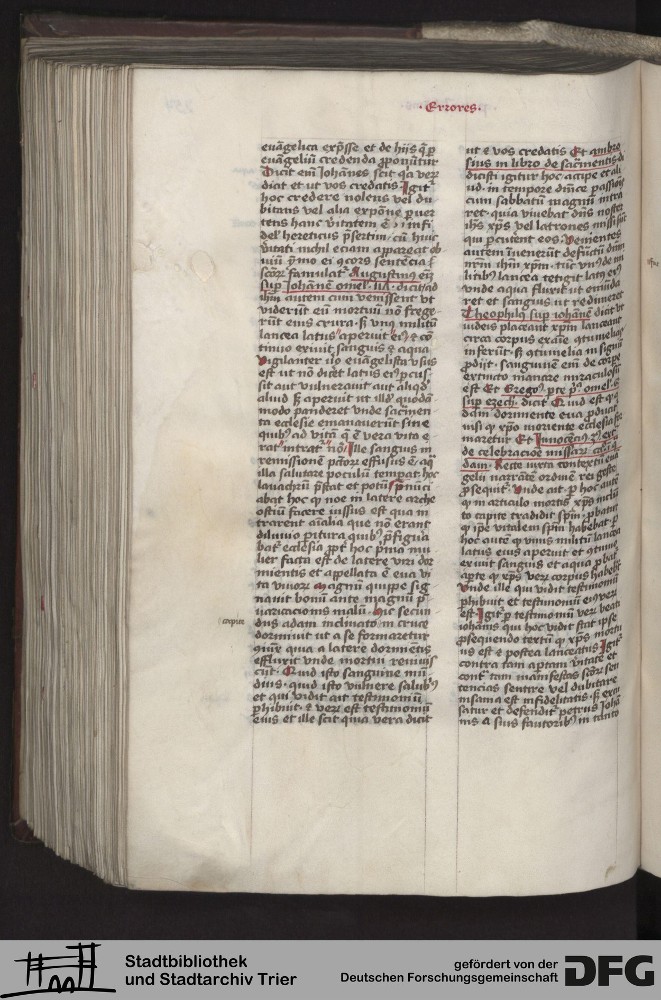 · Errores ·
euāgelica exp̄sse et de hijs q̄ ꝑ
euāgeliū credenda ꝓponūtur
Dicit em̄ Johānes scit qꝛ veꝝ
dicit et ut vos credatis Igit᷑
hoc credere nolens vel du
bitans vel alia expōne ꝑuer
tens hanc v̄itatem ē infi
del' hereticus p̄sertim cū huic
v̄itati nichil eciam appareat ob
uiū
scōꝝ famulat᷑ Augustinus em̄
suꝑ Johānē omel' dicit ad
ihm̄ autem cum venissent ut
viderūt eū mortuū nō frege
rūt eius crura · s; vnꝯ militū
lancea latus aperuit ei⁹ ⁊ cō
tinuo exiuit sanguis ⁊ aqua
vigilanter v̊o euāgelista
est ut nō dicēt latus ei⁹ ꝑcus
sit aut vulnerauit aut aliqd'
aliud s; aperuit ut ill' quodā
modo panderet vnde sacmen
ta ecclesie emanauerūt sine
quib⁹ ad vitā q̄ ē vera vita
intrat᷑ nō Ille sanguis in
remissionem pctōꝝ effusus ē aq̄
illa salutare poculū tempat᷑ hoc
lauachrū p̄stat et potū p̄nūci
abat hoc qꝛ noe in latere arche
ostiū facere iussus est qua in
trarent aīalia que nō erant
diluuio ꝑitura quib⁹ p̄figu
bat᷑ ecclesia ꝓpt' hoc p̄ma mu
lier facta est de latere viri dor
mientis et appellata ē eua vi
ta viuoꝝ magnū quippe sig
nauit bonū ante magnū p̄
uaricacionis malū · Hic secun
dus adam inclinato in cruce
capite
dormiuit ut a se formaretur
quia a latere dormiētis
effluxit vnde mortui reuiuis
cūt · Quid isto sanguine mū
dius · quid isto vulnere salub⁹
et qui vidit ait testimoniū
ꝑhibuit · ⁊ verū est testimoniū
eius et ille scit quia vera dicit
ut ⁊ vos credatis Et ambro
sius in libro de sacmentis
dicisti igitur hoc accipe et ali
ud · in tempore dnīce passiōis
cum sabbatū magnū intra
ret · quia viuebat dn̄s noster
ihs xp̄s vel latrones missi sūt
qui ꝑcutent eos · venientes
autem inuenerūt defūctū dnm̄
nrm̄ ihm xpm̄ · tūc vnꝰ de mi
litib⁹ lancea tetigit latꝰ ei⁹
vnde aqua fluxit ut mūda
ret et sanguis ut redimeret
Theophilꝯ suꝑ iohānē dicat ut
iudeis placeant xpm̄ lanceant
circa corpus
inferūt · s; contumelia in signū
ꝓdijt · sanguinem em̄ de corpe
extincto manare miraculosū
est Et Gregoꝰ
suꝑ ezech · dicit Quid est qꝛ
dam dormiente eua ꝓducit᷑
nisi qꝛ xpo moriente ecclesia for
maretur Et Innocēcius
de celebracione missaꝝ cum
dam · Recte iuxta contextū euā
gelij narrāte ordinē rei geste
ꝓsequit᷑ · Vnde ait ꝑ hoc autē
qꝛ in articulo mortis xp̄s inclina
to capite tradidit sp̄m · ꝓbatur
qꝛ ip̄e vitalem sp̄m habebat ꝑ
hoc autē qꝛ vnus militū lancea
latus eius aperuit et continuo
exiuit sanguis et aqua ꝓbat᷑
apte qꝛ xp̄s veꝝ corpus habebat
Vnde ille qui vidit testimoniū
ꝑhibuit et testimoniū ei⁹ verū
est · Igit᷑ ꝑ testimoniū veꝝ beati
iohānis qui hoc vidit stat ip̄se
ꝓsequendo textū qꝛ xp̄s mortu
us est ⁊ postea lanceatus Igit᷑
contra tam aptam v̄itatē et
cont᷑ tam maīfestas scōꝝ sen
tencias sentire vel dubitare
insania est infidelitatis · s; excu
satur et defendit᷑ petrus Johā
nis a suis fautorib⁹ in tanto
Stadtbibliothek
und Stadtarchiv Trier
gefördert von der
Deutschen Forschungsgemeinschaft
DFG